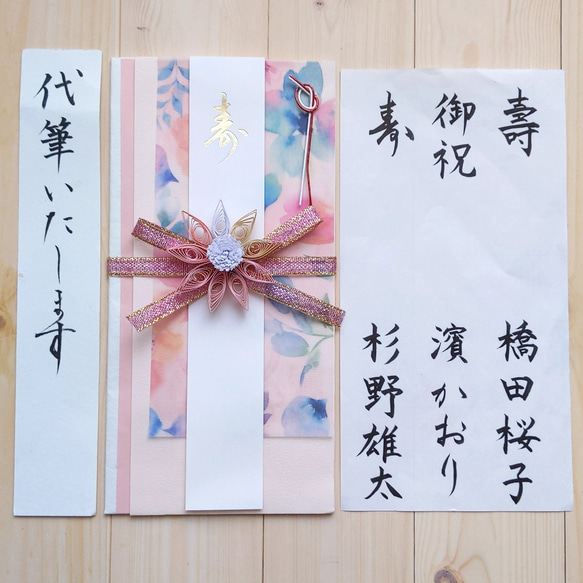 代筆いたします
寿
壽
御祝
寿
橋田桜子
濱かおり
杉野雄太